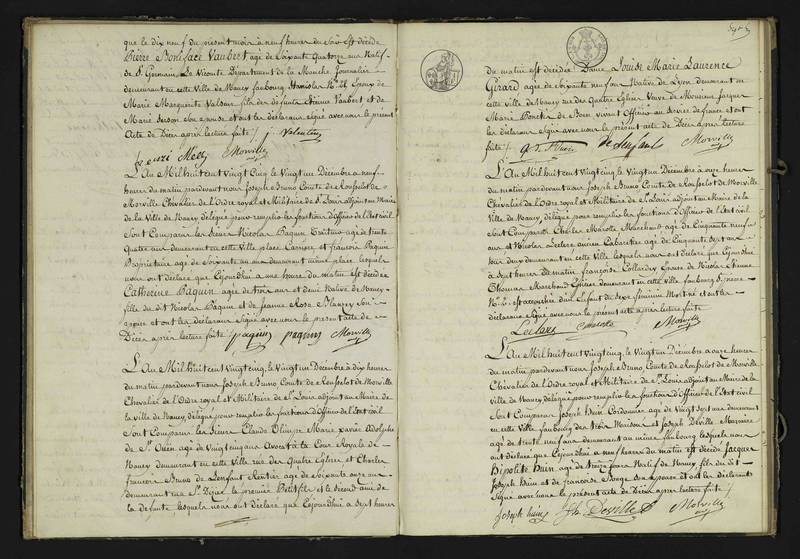 que le dix neuf du présent mois à neuf heures du soir est décédé
Pierre Boniface Vaubert agé de soixante Quatorze ans Natif
de St. Germain Le Vicomte Département de la Manche Journalier
demeurant en cette Ville de Nancy faubourg Stanislas Epoux de
Marie Marguerite Valour fils des défunts Etienne Vaubert et de
Marie son épouse et ont les déclarans signé avec nous le présent
Acte de Décès après lecture faite
Valentin
Morville
L'An Mil huit cent Vingt Cinq le Vingt un Décembre à neuf
heures du matin pardevant nous Joseph Bruno Comte de Rousselot de
Morville Chevalier de l'Ordre royal et Militaire de St. Louis adjoint au Maire
de la Ville de Nancy, délégué pour remplir les fonctions d'Officier de l'Etat civil
Sont Comparus les Sieurs Nicolas Paquin agé de trente
Quatre ans demeurant en cette Ville place Carriere et francois Paquin
Propriétaire agé de soixante un ans demeurant même place lesquels
nous ont déclaré que Cejourd'hui a une heure du matin est décédée
Catherine Paquin agée de trois ans et demi Native de Nancy
fille du dit Nicolas Paquin et de Jeanne Rose son
épouse et ont les déclarans signé avec nous le présent acte de
Décès après lecture faite
paquin paquin Morville
L'An Mil huit cent Vingt cinq, le Vingt un Décembre à dix heures
du matin pardevant nous Joseph Bruno Comte de Rousselot de Morville
Chevalier de l'Ordre royal et Militaire de St. Louis adjoint au Maire de
la Ville de Nancy, délégué pour remplir les fonctions d'Officier de l'Etat civil
Sont Comparus les Sieurs Claude Olimpe Marie xavier Adolphe
de St. Ouen agé de Vingt cinq ans Avocat à la Cour Royale de
Nancy demeurant en cette Ville rue des Quatre Eglises et Charles
francois Bruno de Lenfant Rentier agé de soixante onze ans
demeurant rue St. Dizier le premier Petit fils et le second ami de
la défunte lesquels nous ont déclaré que Cejourd'hui à sept heures
du matin est décédée Dame Louise Marie Laurence
Girard agée de soixante neuf ans Native de Lyon demeurant en
cette Ville de Nancy rue des Quatre Eglises Veuve de Monsieur Jacques
Marie vivant Officier au service de france et ont
les déclarans signé avec nous le présent acte de Décès après lecture
faite
Morville
L'An Mil huit cent Vingt cinq, le Vingt un Décembre à onze heures
du matin pardevant nous Joseph Bruno Comte de Rousselot de Morville
Chevalier de l'Ordre royal et Militaire de St. Louis, adjoint au Maire de la
Ville de Nancy, délégué pour remplir les fonctions d'Officier de l'Etat civil
Sont Comparus Charles Marchand agé de Cinquante neuf
ans et Nicolas Leclere ancien Cabaretier agé de Cinquante sept ans
tous deux demeurant en cette Ville lesquels nous ont déclaré que Cejourd'hui
à sept heures du matin françoise Collardey Epouse de Nicolas Etienne
Thomas Marchand Epicier demeurant en cette Ville faubourg St. pierre
est accouchée d'un Enfant du sexe féminin Mort né et ont les
déclarans signé avec nous le présent acte après lecture faite
Leclere Morville
L'An Mil huit cent Vingt cinq, le Vingt un Décembre à onze heures
du matin pardevant nous Joseph Bruno Comte de Rousselot de Morville
Chevalier de l'Ordre royal et Militaire de St. Louis adjoint au Maire de la
Ville de Nancy délégué pour remplir les fonctions d'Officier de l'Etat civil
Sont Comparus Joseph Hain Cordonnier agé de Vingt sept ans demeurant
en cette Ville faubourg des trois Maisons et Joseph Deville
agé de trente neuf ans demeurant au même faubourg lesquels nous
ont déclaré que Cejourd'hui a neuf heures du matin est décédé Jacques
Hipolite Hain agé de trois jours Natif de Nancy fils du dit
Joseph Hain et de francoise son épouse et ont les déclarans
signé avec nous le présent acte de Décès après lecture faite
Joseph hain Deville Morville